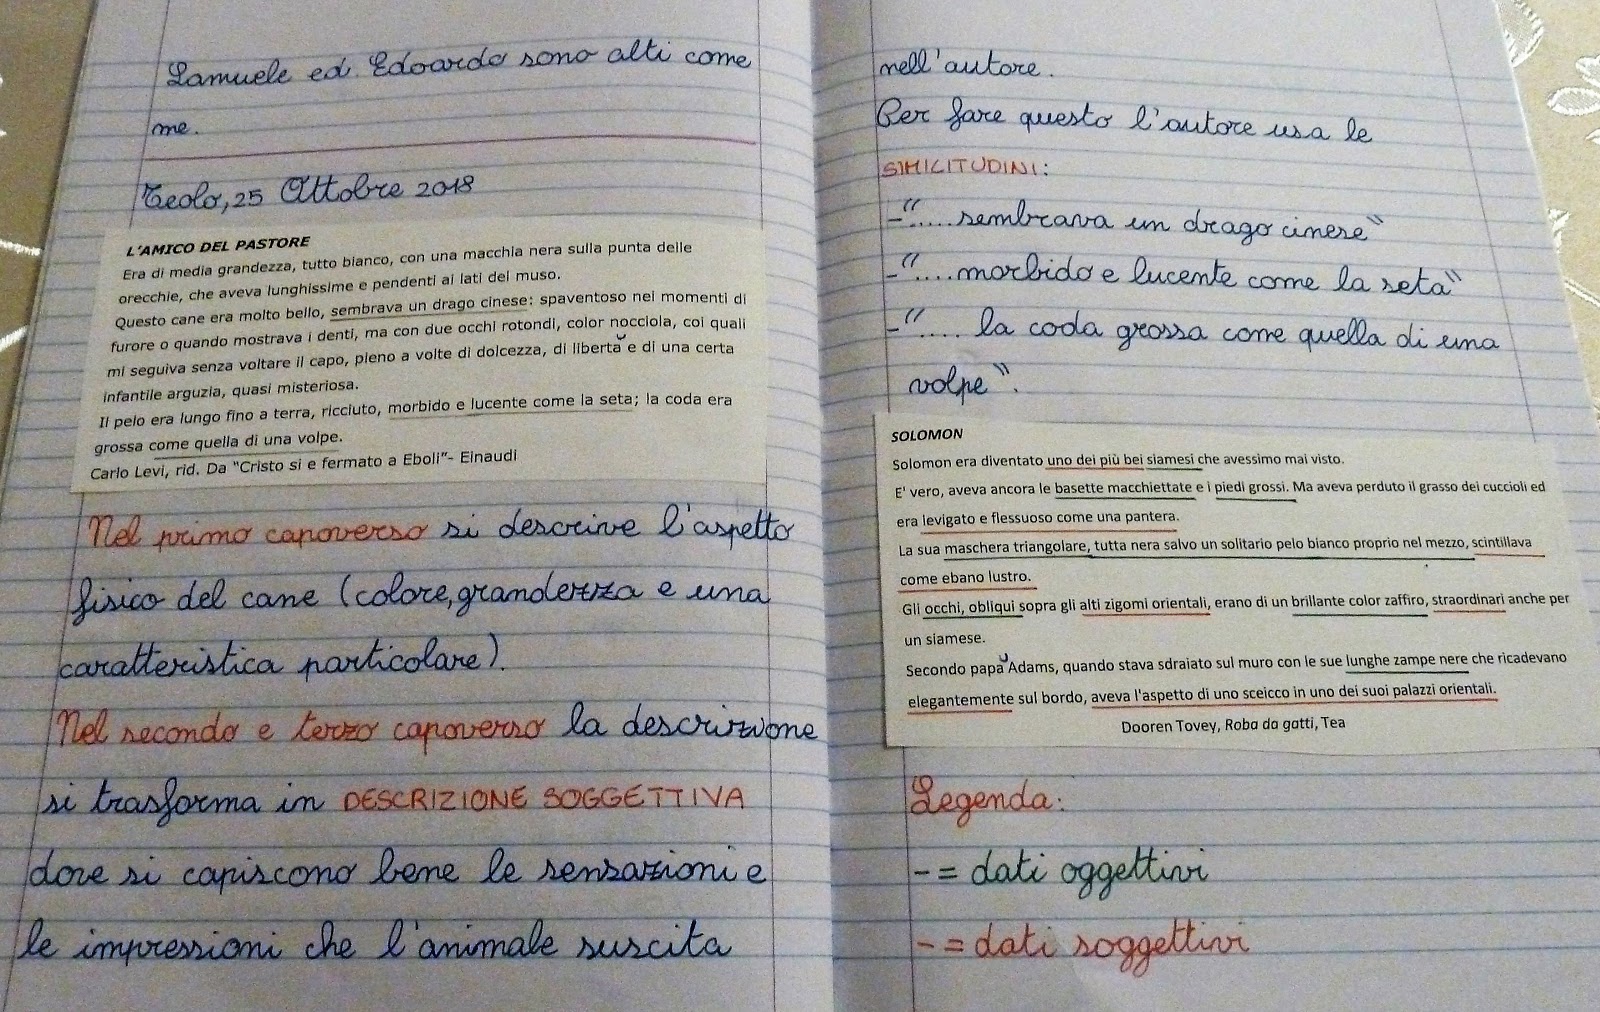 Samuele ed Edoardo sono alti come
me.
Teolo, 25 Ottobre 2018
L'AMICO DEL PASTORE
Era di media grandezza, tutto bianco, con una macchia nera sulla punta delle
orecchie, che aveva lunghissime e pendenti ai lati del muso.
Questo cane era molto bello, sembrava un drago cinese: spaventoso nei momenti di
furore o quando mostrava i denti, ma con due occhi rotondi, color nocciola, coi quali
mi seguiva senza voltare il capo, pieno a volte di dolcezza, di libertà e di una certa
infantile arguzia, quasi misteriosa.
Il pelo era lungo fino a terra, ricciuto, morbido e lucente come la seta; la coda era
grossa come quella di una volpe.
Carlo Levi, rid. Da "Cristo si e fermato a Eboli"- Einaudi
Nel primo capoverso si descrive l'aspetto
fisico del cane (colore, grandezza e una
caratteristica particolare).
Nel secondo e terzo capoverso la descrizione
si trasforma in DESCRIZIONE SOGGETTIVA
dove si capiscono bene le sensazioni e
le impressioni che l'animale suscita
nell'autore.
Per fare questo l'autore usa le
SIMILITUDINI:
-"....sembrava un drago cinese"
-"....morbido e lucente come la seta"
-".... la coda grossa come quella di una
volpe".
SOLOMON
Solomon era diventato uno dei più bei siamesi che avessimo mai visto.
E' vero, aveva ancora le basette macchiettate e i piedi grossi. Ma aveva perduto il grasso dei cuccioli ed
era levigato e flessuoso come una pantera.
La sua maschera triangolare, tutta nera salvo un solitario pelo bianco proprio nel mezzo, scintillava
come ebano lustro.
Gli occhi, obliqui sopra gli alti zigomi orientali, erano di un brillante color zaffiro, straordinari anche per
un siamese.
Secondo papà Adams, quando stava sdraiato sul muro con le sue lunghe zampe nere che ricadevano
elegantemente sul bordo, aveva l'aspetto di uno sceicco in uno dei suoi palazzi orientali.
Dooren Tovey, Roba da gatti, Tea
Legenda:
- = dati oggettivi
- = dati soggettivi